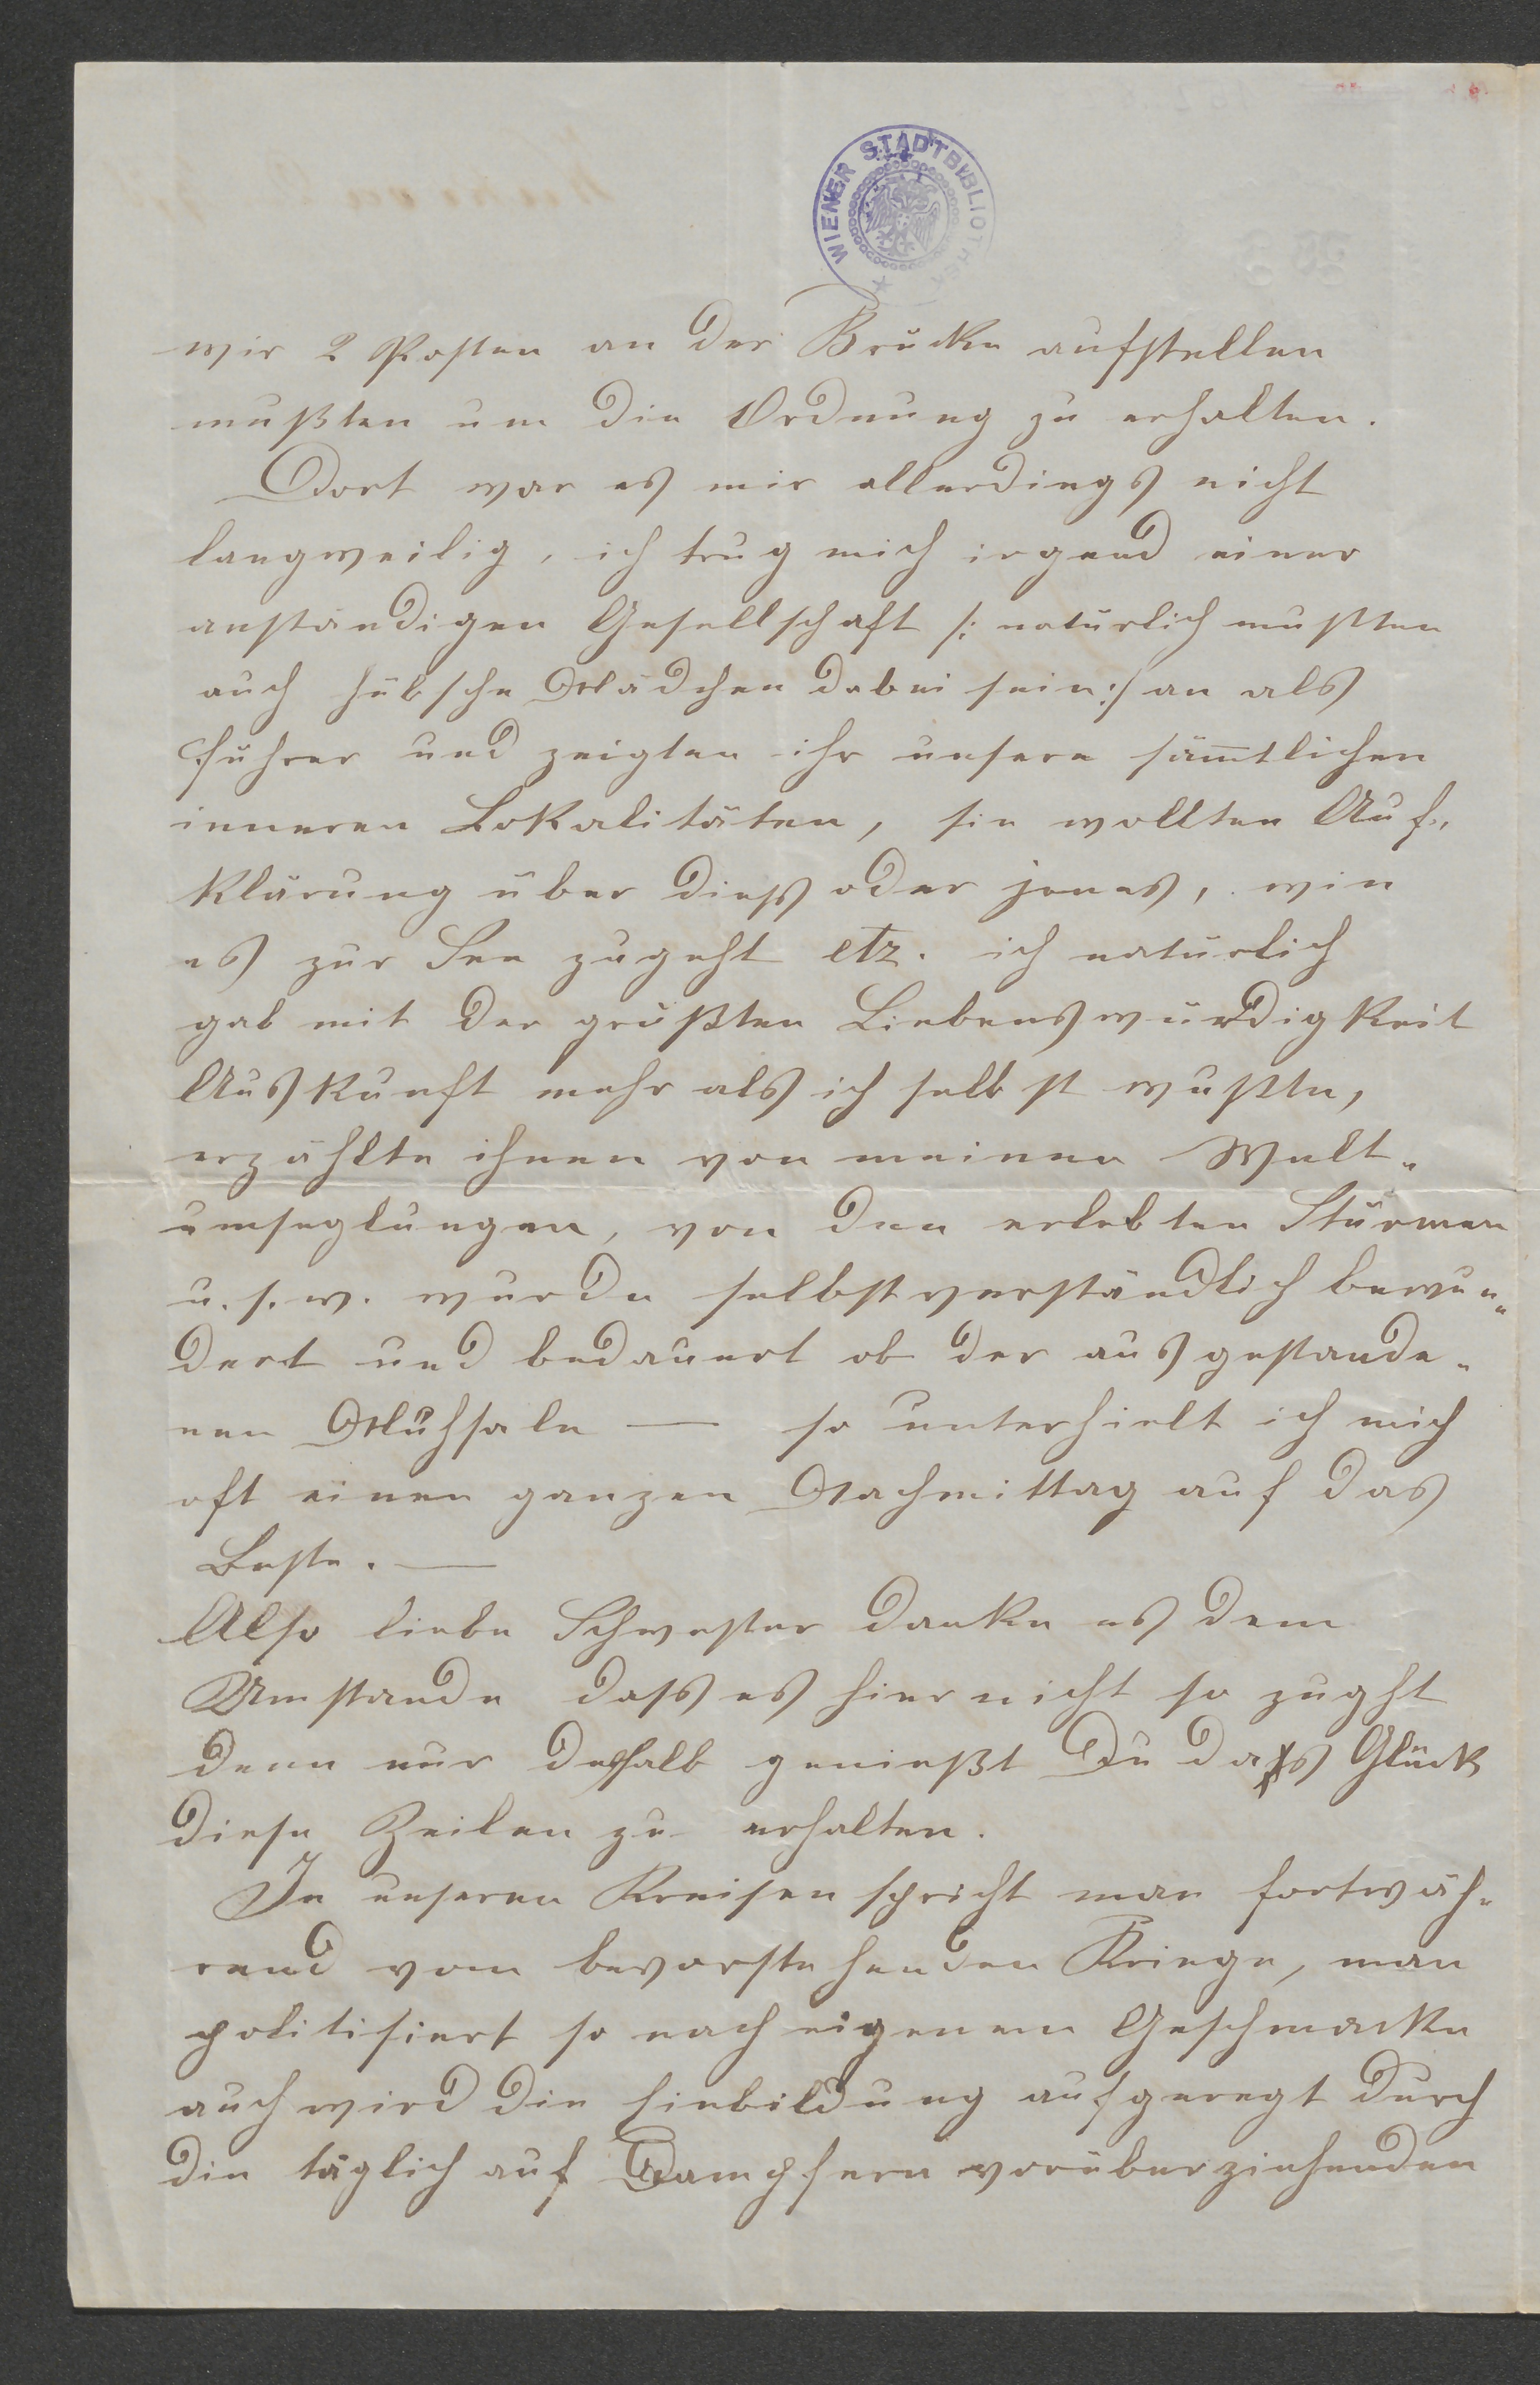 WIENER STADTBIBLIOTHEK
wir 2 Posten an der Brücke aufstellen
mußten um die Ordnung zu erhalten.
Dort war es mir allerdings nicht
langweilig, ich trug mich irgend einer
anständigen Gesellschaft /: natürlich mußten
auch hübsche Mädchen dabei sein :/ an als
Führer und zeigten ihr unsere säm̅tlichen
inneren Lokalitäten, sie wollten Auf„
klärung über dieß oder jenes, wie
es zur See zugeht etz. ich natürlich
gab mit der größten Liebenswürdigkeit
Auskunft mehr als ich selbst wußte,
erzählte ihnen von meinen Welt„
umseglungen, von den erlebten Stürmen
u. s. w. wurde selbstverständlich bewun„
dert und bedauert ob der ausgestande„
nen Mühsale — so unterhielt ich mich
oft einen ganzen Nachmittag auf das
Beste. —
Also liebe Schwester danke es dem
Umstande dass es hier nicht so zught
denn nur deßhalb genießt Du das Glück
diese Zeilen zu erhalten.
In unseren Kreisen spricht man fortwäh„
rend vom bevorstehenden Kriege, man
politisiert so nach eigenem Geschmacke
auch wird die Einbildung aufgeregt durch
die täglich auf Dampfern vorüberziehenden